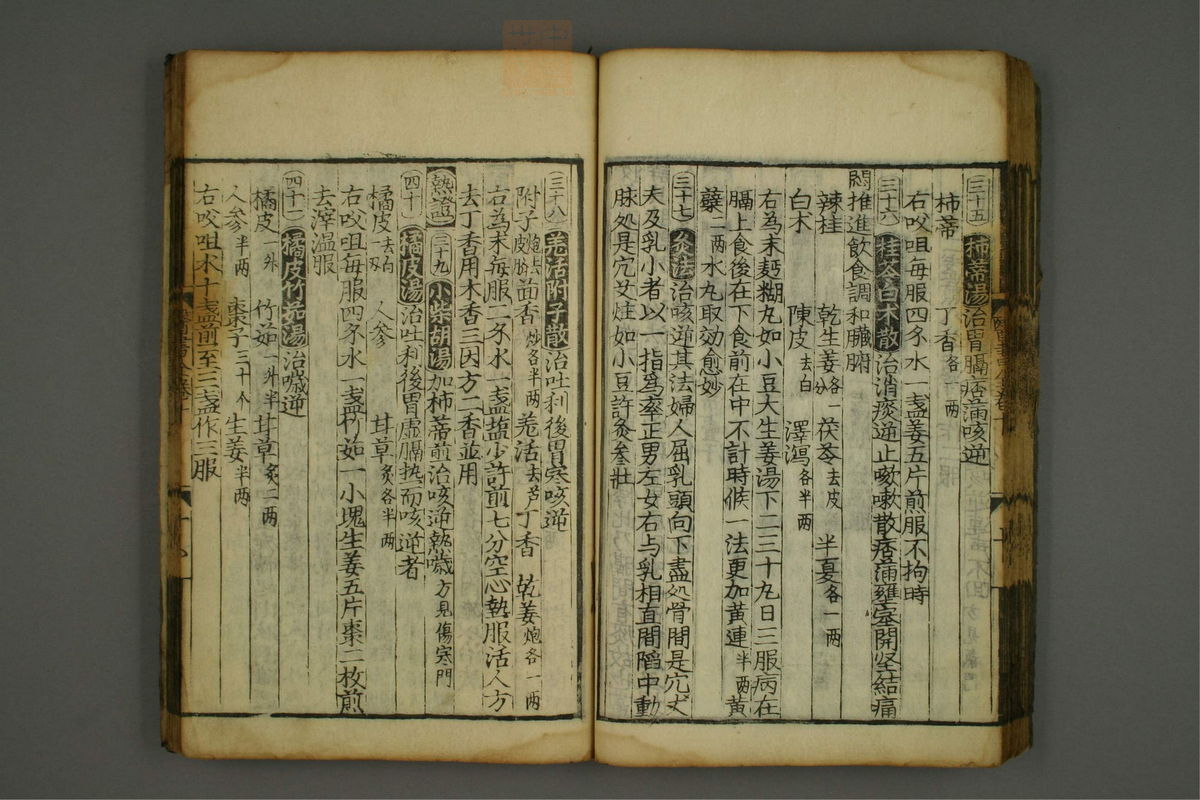 三十五 柿蒂湯 治胃膈痞滿咳逆
柿蒂 丁香各一两
右㕮咀每服四㕛水一盞姜五片煎服不拘時
三十六 桂苓白术散 治消痰逆止嗽嗽散痞滿壅塞開坚結痛
悶推進飲食調和臟腑
辣桂 乾生姜各一分 茯苓去皮 半夏各一两
白术 陳皮去白 澤瀉各半两
右為末麪糊丸如小豆大生姜湯下二三十九日三服病在
膈上食後在下食前在中不計時候一法更加黃連半两黃
蘗一两水丸取効愈妙
三十七 灸法 治咳逆其法婦人屈乳頭向下盡処骨間是穴丈
夫及乳小者以一指爲率正男左女右与乳相直間陷中動
脉処是穴艾炷如小豆許灸叁壯
三十八 羗活附子散 治吐利後胃寒咳逆
附子炮去皮臍 茴香炒各半两 羗活去芦 丁香 乾姜炮各一两
右為末每服二㕛水一盞盐少許煎七分空心熱服活人方
去丁香用木香三因方二香並用
熱證 三十九 小柴胡湯 加柿蒂煎治咳逆熱噦方見傷寒門
四十 橘皮湯 治吐利後胃虛膈热而咳逆者
橘皮去白一㕛 人參 甘草炙各半两
右㕮咀每服四㕛水一盞竹茹一小塊生姜五片棗二枚煎
去滓温服
四十一 橘皮竹茹湯 治噦逆
橘皮一升 竹茹一升半 甘草炙二两
人參半两 棗子三十个 生姜半两
右㕮咀水十盞煎至三盞作三服